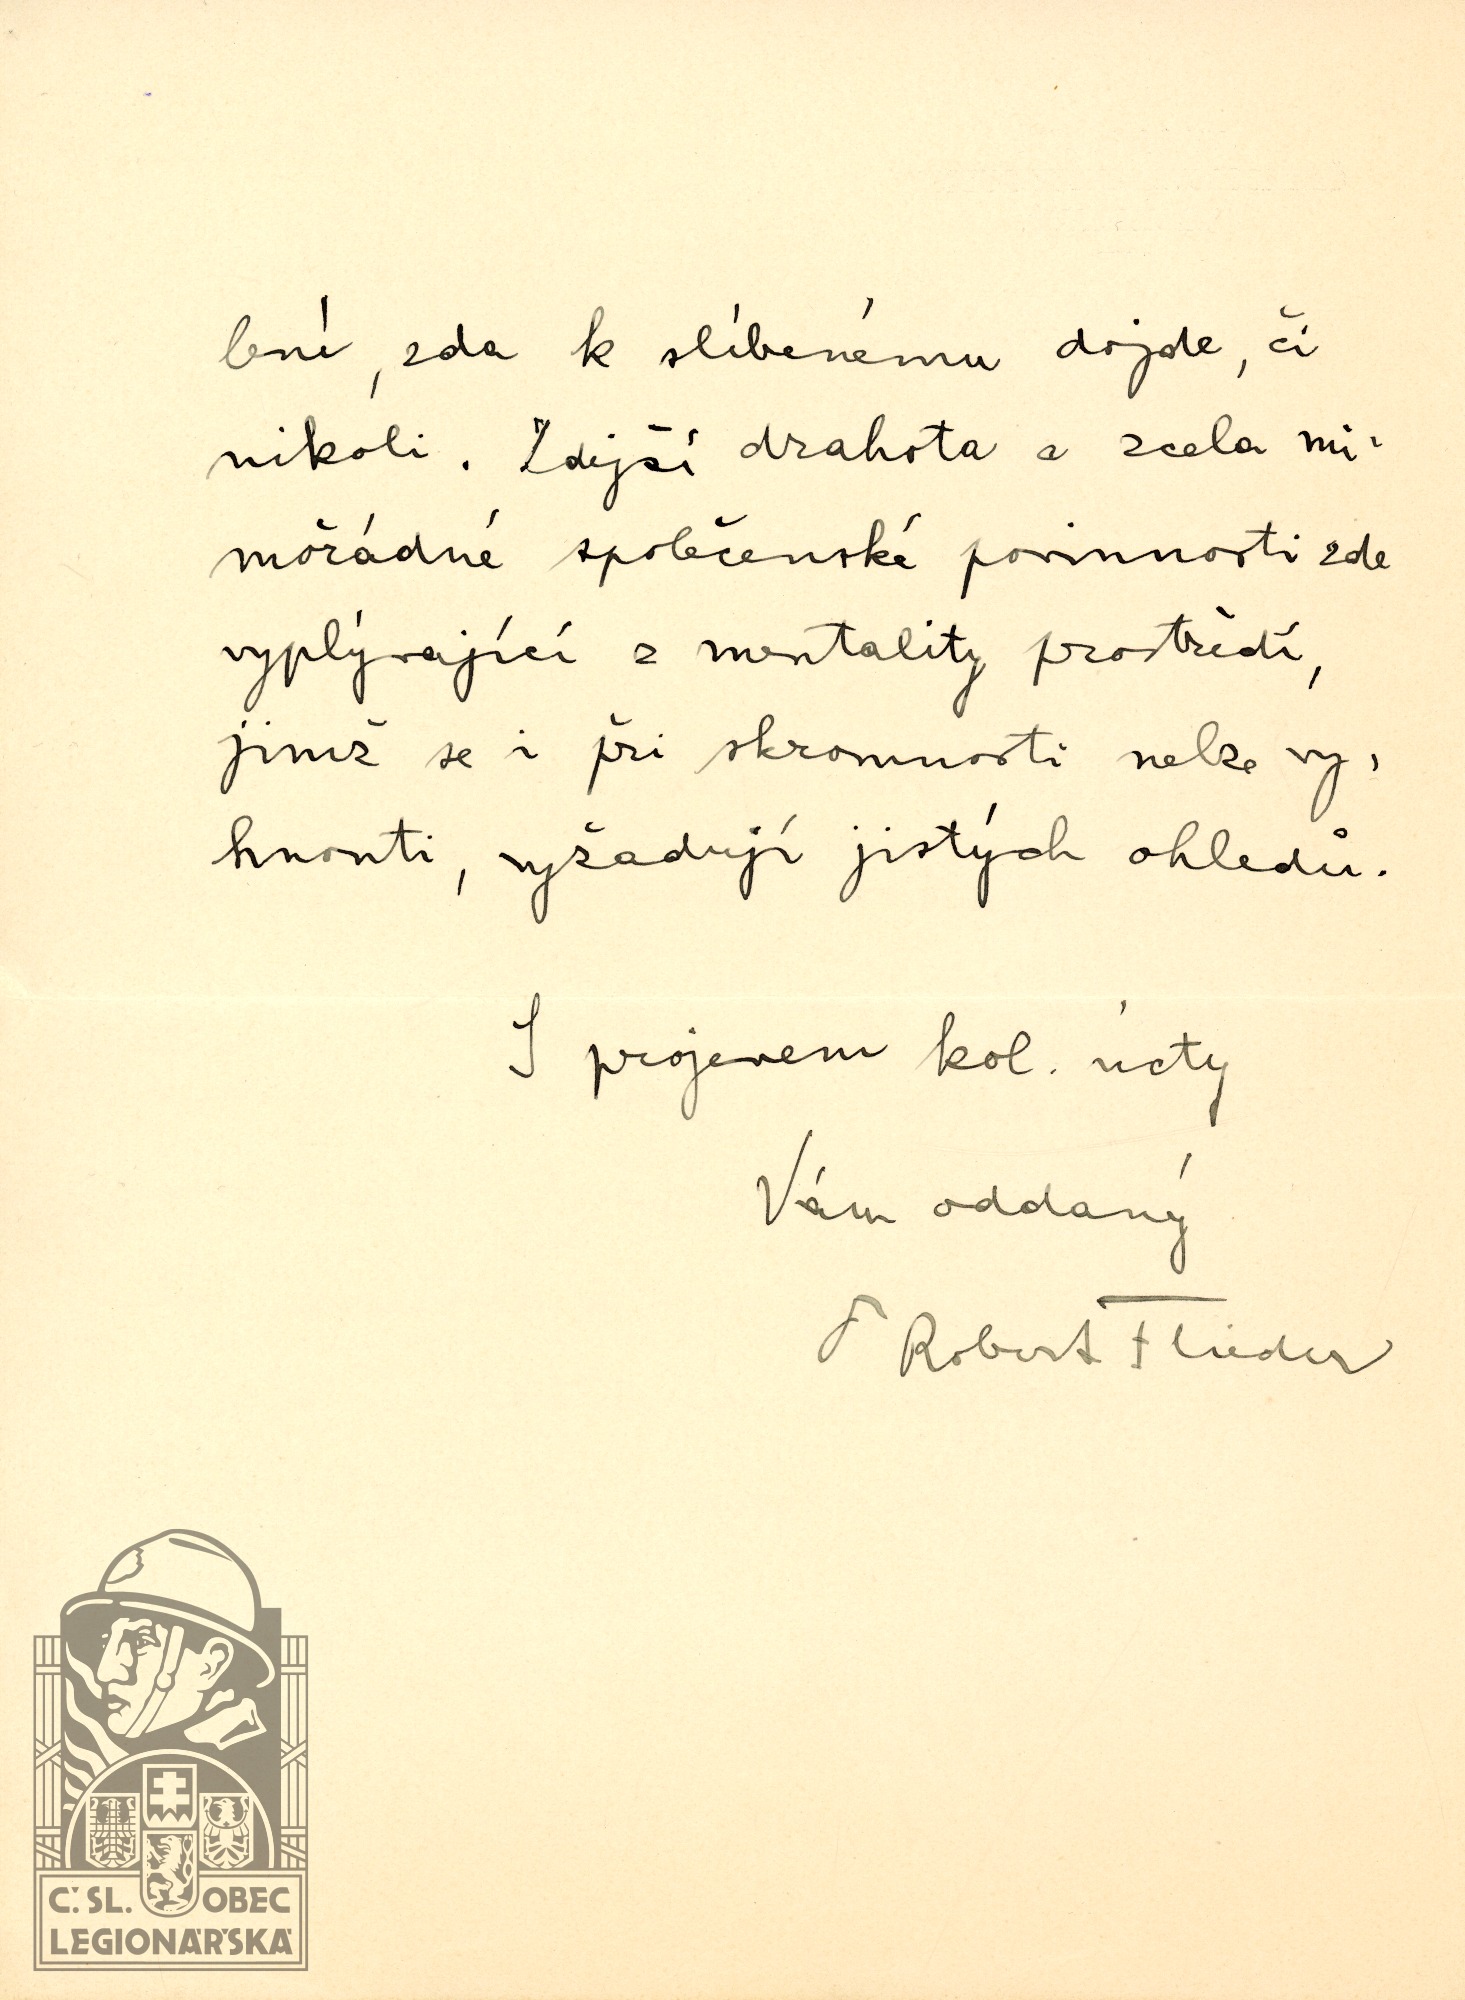 bené, zda k slíbenému dojde, či
nikoli. Zdejší drahota a zcela mi-
mořádné společenské povinnosti zde
vyplývající z mentality prostředí,
jimž se i při skromnosti nelze vy-
hnouti, vyžadují jistých ohledů.
S projevem kol. úcty
Vám oddaný
Robert Flieder
Č. SL. OBEC
LEGIONÁŘSKÁ